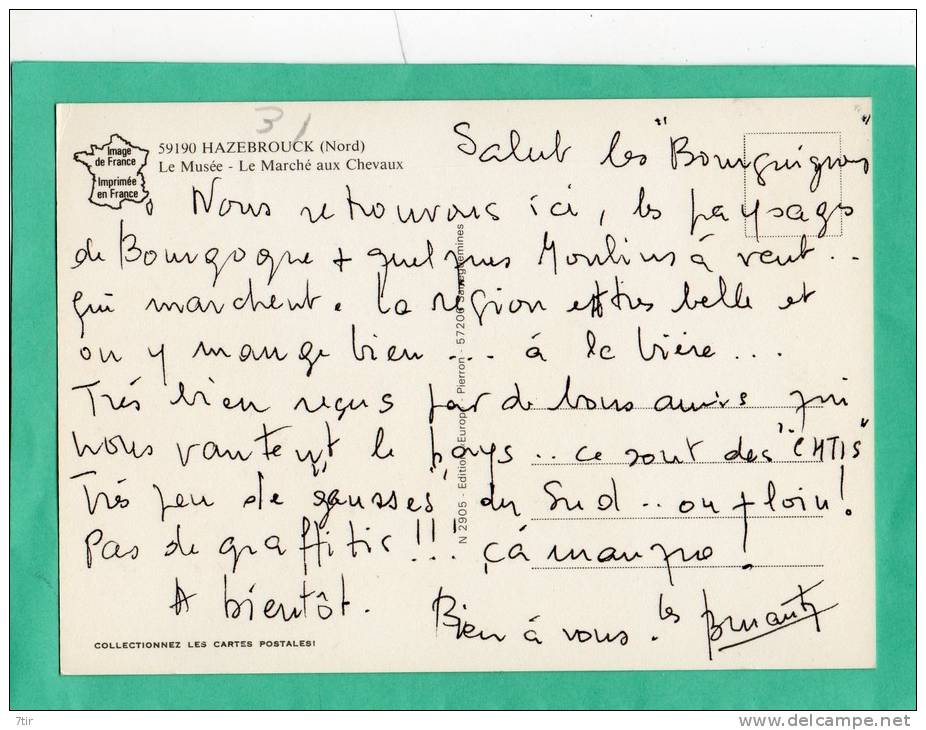 31
Image
de France
Imprimée
en France
59190 HAZEBROUCK (Nord)
Le Musée - Le Marché aux Chevaux
Salut les "Bourguignons"
Nous retrouvons ici, les paysages
de Bourgogne + quelques Moulins à vent..
qui marchent. La région est très belle et
on y mange bien ... à la bière ...
Très bien reçus par de bons amis qui
nous vantent le pays .. ce sont des "CHTIS"
Très peu de "gausses" du Sud .. ou + loin!
Pas de graffitis !!! çà manque!
A bientôt.
Bien à vous. les
N 2905 - Editions Europ - Pierron - 57206 Sarreguemines
COLLECTIONNEZ LES CARTES POSTALES!
7tir
www.delcampe.net